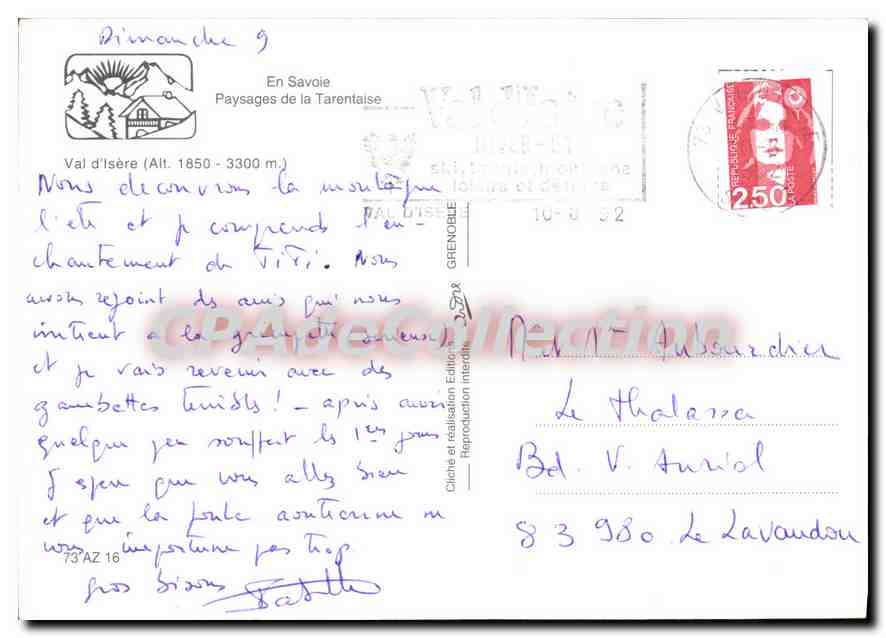 Dimanche 9
En Savoie
Paysages de la Tarentaise
Val d'Isère (Alt. 1850 - 3300 m.)
Nous decouvrons la montagne
l'été et je comprends l'en-
chantement de TiTi. Nous
avons rejoint des amis qui nous
initient a la grimpette
et je vais revenir avec des
gambettes terribles! - après avoir
quelque peu souffert les 1ers jours
J'espère que vous allez bien
et que la foule aoutienne ne
vous importune pas trop
gros bisous
73 AZ 16
VAL D'ISERE
10-8 92
REPUBLIQUE FRANÇAISE
2,50
LA POSTE
GRENOBLE
Cliché et réalisation Editions
Reproduction interdite
CPAdeCollection
M et Mme Aubourdier
Le Thalassa
Bd. V. Auriol
83980 Le Lavandou